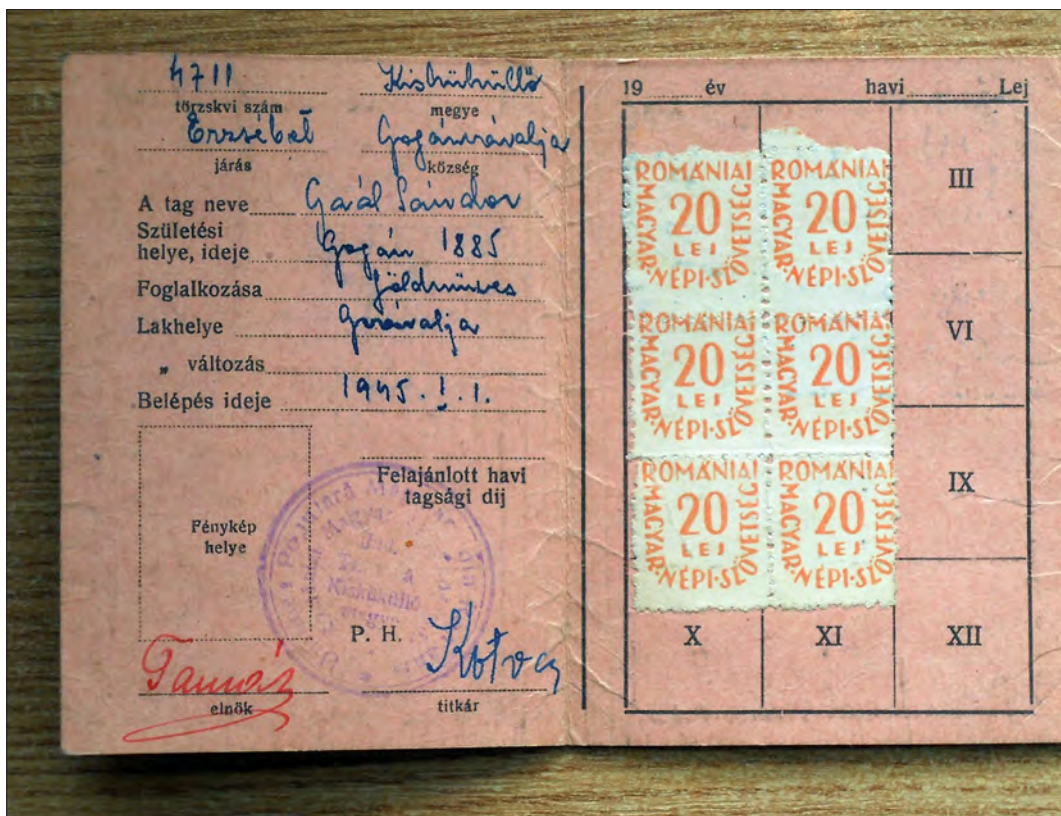 4711 Kisküküllő
törzskvi szám megye
Erzsébet Gogánváralja
járás község
A tag neve Gaál Sándor
Születési
helye, ideje Gogán 1885
Foglalkozása földmüves
Lakhelye Gváralja
„ változás
Belépés ideje 1945. I. 1.
Felajánlott havi
tagsági dij
Fénykép
helye
Kisküküllő
P. H.
Tamás
elnök titkár
19 év havi Lej
ROMÁNIAI MAGYAR NÉPI SZÖVETSÉG 20 LEJ
ROMÁNIAI MAGYAR NÉPI SZÖVETSÉG 20 LEJ
III
ROMÁNIAI MAGYAR NÉPI SZÖVETSÉG 20 LEJ
ROMÁNIAI MAGYAR NÉPI SZÖVETSÉG 20 LEJ
VI
ROMÁNIAI MAGYAR NÉPI SZÖVETSÉG 20 LEJ
ROMÁNIAI MAGYAR NÉPI SZÖVETSÉG 20 LEJ
IX
X XI XII